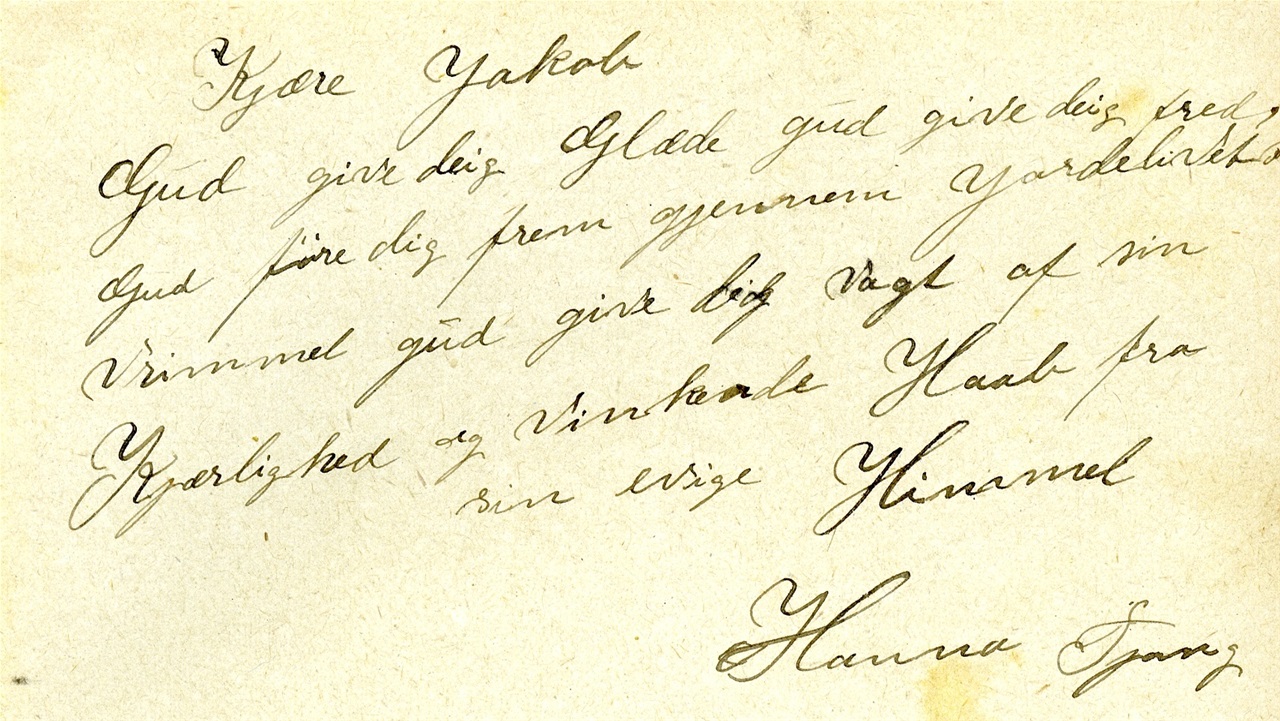 Kjære Yakob
Gud give deig Glæde gud give deig fred
Gud føre dig frem gjennem Yordelivets
Vrimmel gud give dig Vagt af sin
Kjærlighed og Vinkende Haab fra
sin evige Himmel
Hanna Tjong